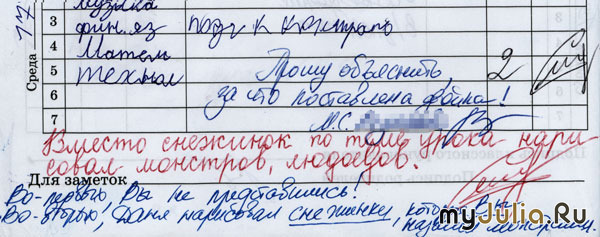 17
Среда
музыка
3 фин. яз подг к контраль
4 Матем
5 технол
6
7
2
Прошу объяснить,
за что поставлена двойка!
М.С.
Вместо снежинок по теме урока нари
совал монстров, людоедов.
Для заметок
Во-первых, Вы не представились!
Во-вторых, Даня нарисовал снежинку, которую Вы
назвали монстром
myJulia.Ru